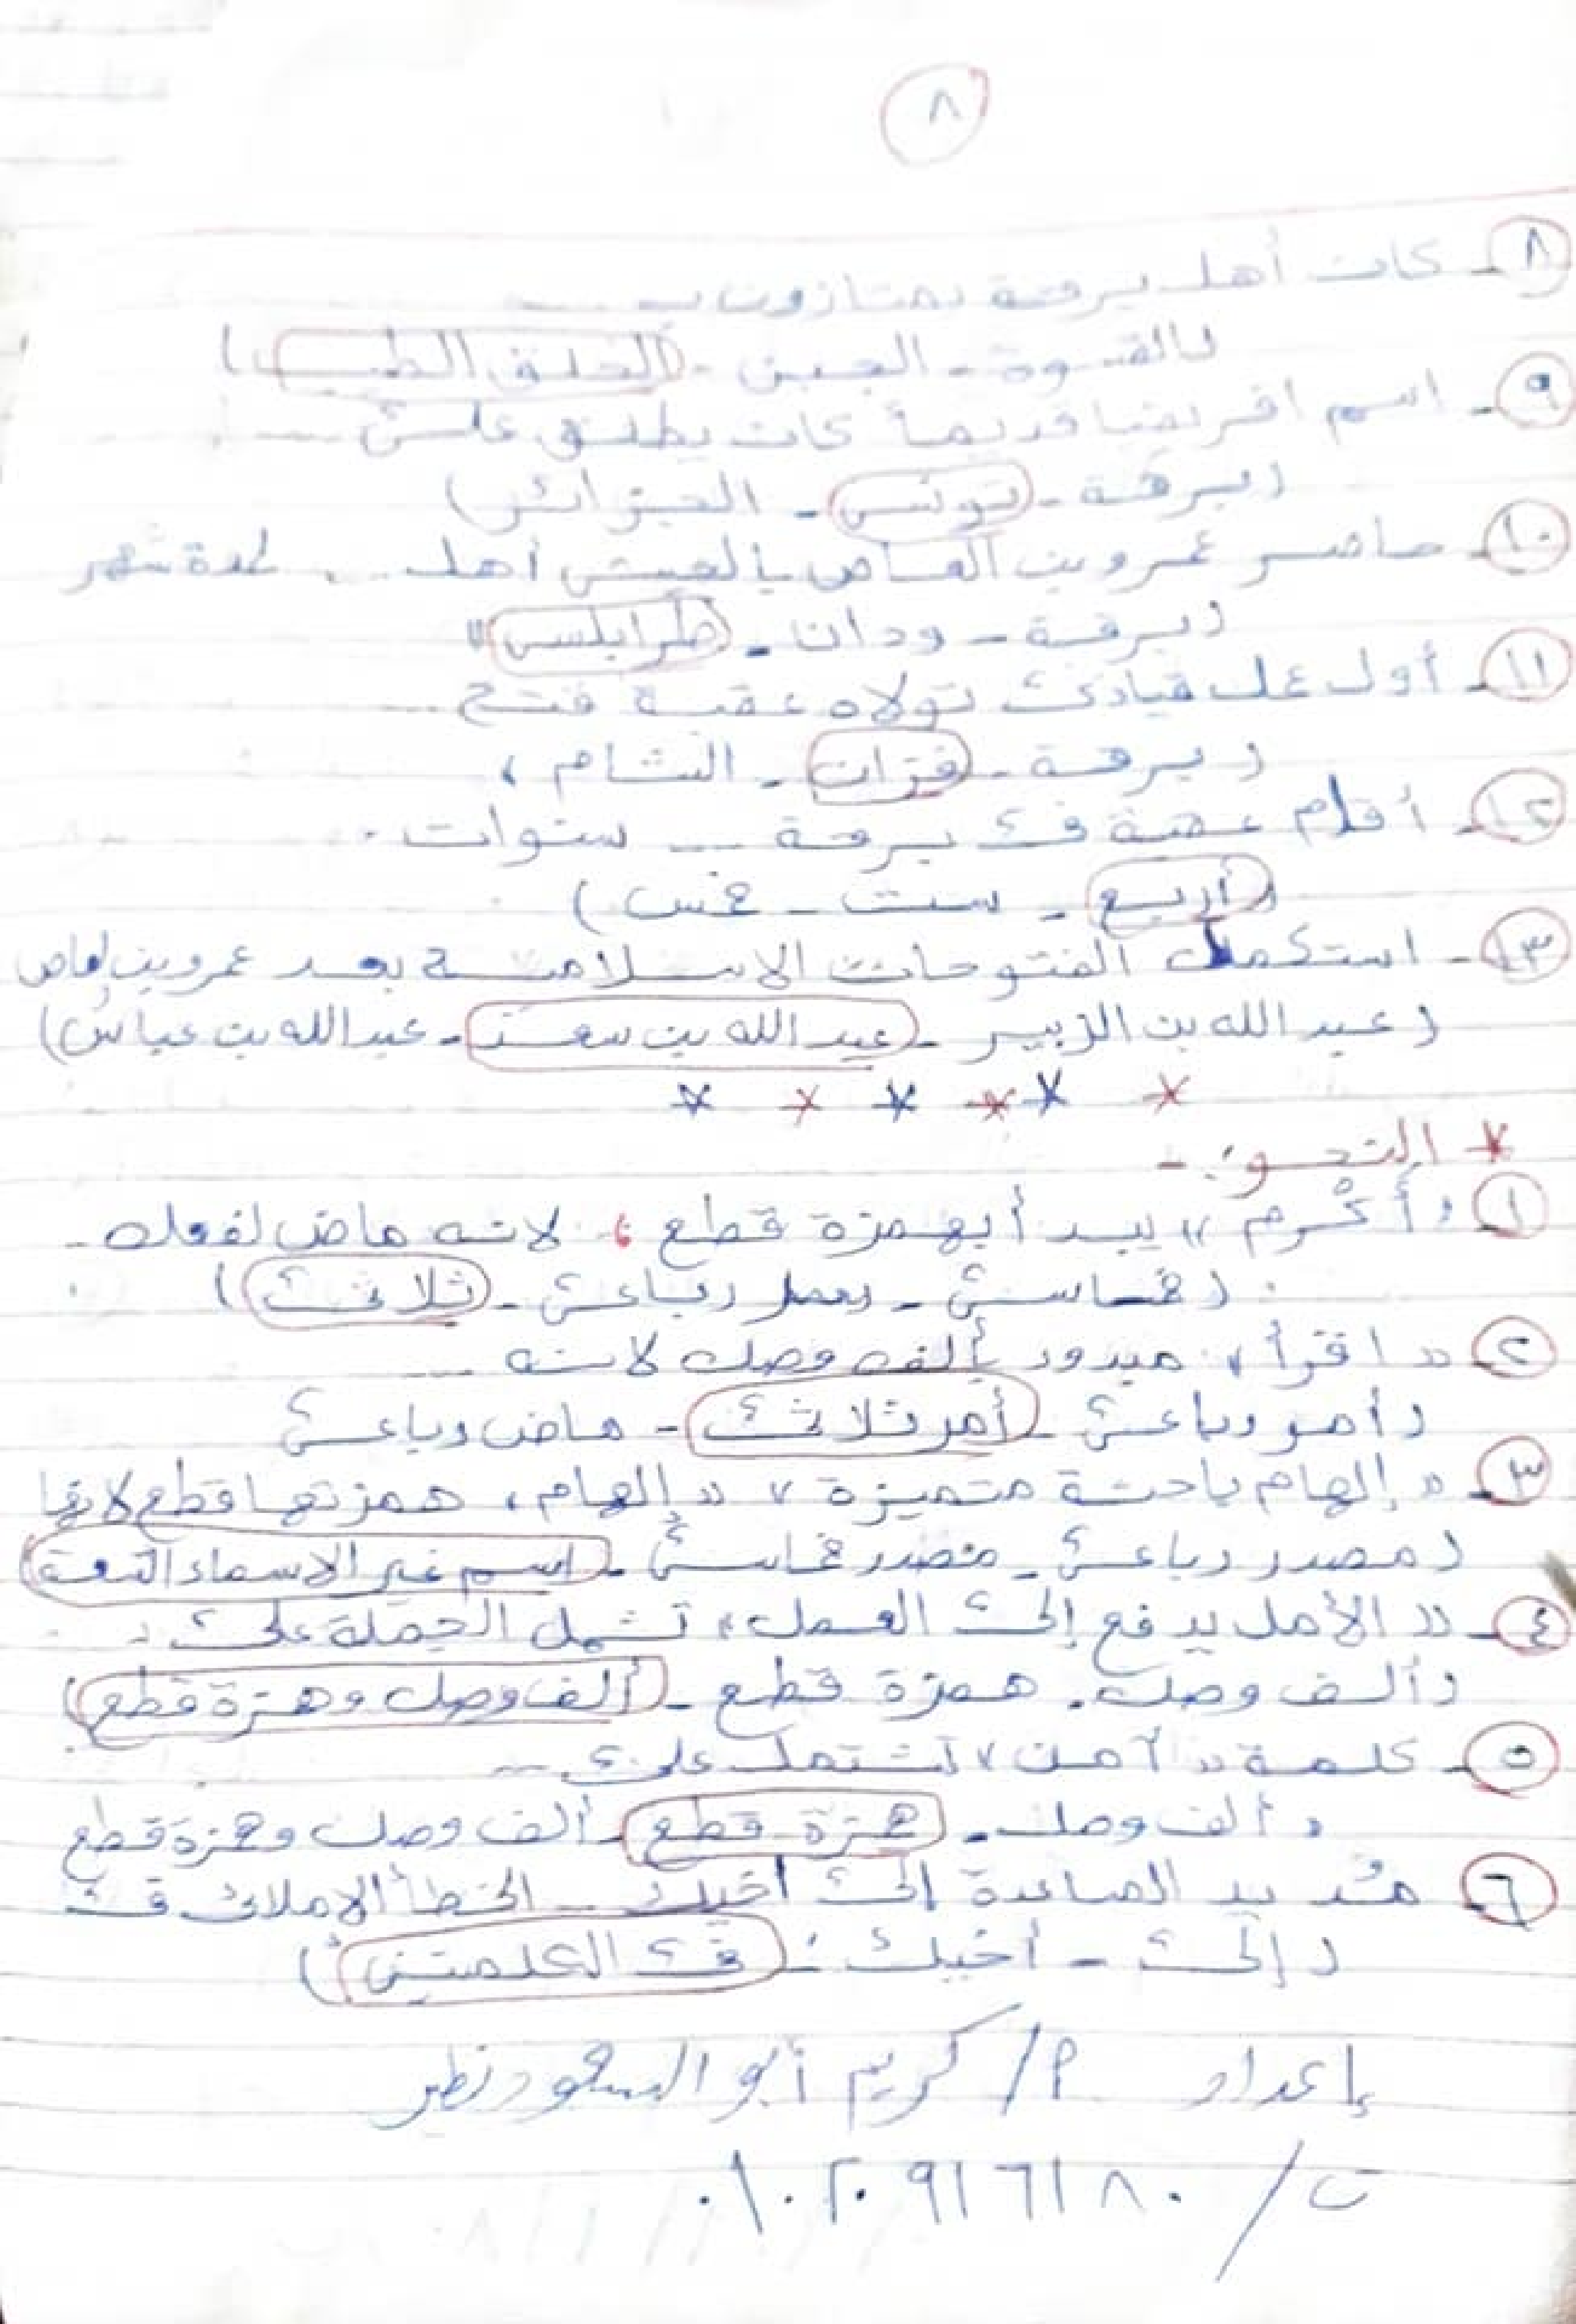 ٨
٨- كان أهل برقة يمتازون بـ ......
(القسوة - الجبن - الخلق الطيب)
٩- اسم افريقيا قديماً كان يطلق على ......
(برقة - تونس - الجزائر)
١٠- حاصر عمرو بن العاص بالجيش أهل ... لمدة شهر
(برقة - ودان - طرابلس)
١١- أول عمل قيادى تولاه عقبة فتح ......
(برقة - فزان - الشام)
١٢- أقام عقبة فى برقة ... سنوات.
(أربع - ست - خمس)
١٣- استكمل الفتوحات الاسلامية بعد عمرو بن العاص
(عبد الله بن الزبير - عبد الله بن سعد - عبد الله بن عباس)
* * * * * *
* النحو:-
١ "أَكْرم" يبدأ بهمزة قطع، لانه ماض لفعل -
(خماسى - رباعى - ثلاثى)
٢ "اقرأ" مبدوء بألف وصل لانه ...
(أمر رباعى - أمر ثلاثى - ماض رباعى
٣- "إلهام باحثة متميزة" "إلهام" همزتها قطع لانها
(مصدر رباعى - مصدر خماسى - اسم غير الاسماء التسعة
٤- "الأمل يدفع إلى العمل" تشمل الجملة على
(ألف وصل. همزة قطع - ألف وصل وهمزة قطع)
٥- كلمة "آمن" تشتمل على ...
(ألف وصل - همزة قطع - ألف وصل وهمزة قطع
٦ مُد يد المساعدة إلى اخيك - الخطأ الاملائى فى
(إلى - أخيك - فى الكلمتين)
إعداد أ/ كريم أبو السعود نظير
ت/ ٠١٠٢٠٩١٦١٨٠